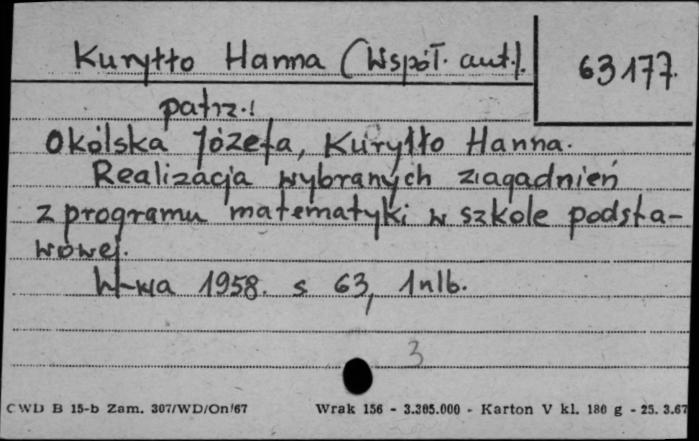 Kuryłło Hanna (Współ. aut.).
63177.
patrz.:
Okólska Józefa, Kuryłło Hanna.
Realizacja wybranych zagadnień
z programu matematyki w szkole podsta-
wowej.
W-wa 1958. s 63, 1 nlb.
3
CWD B 15-b Zam. 307/WD/On/67
Wrak 156 - 3.305.000 - Karton V kl. 180 g - 25. 3.67